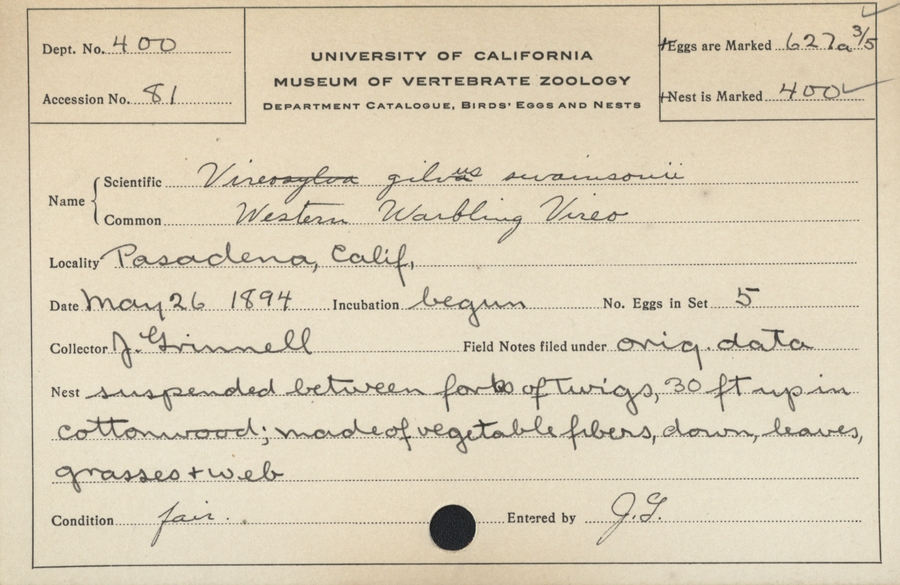 Dept. No. 400
Accession No. 81
UNIVERSITY OF CALIFORNIA
MUSEUM OF VERTEBRATE ZOOLOGY
DEPARTMENT CATALOGUE, BIRDS' EGGS AND NESTS
Eggs are Marked 627a 3/5
Nest is Marked 400
Name
Scientific Vireosylva gilvus swainsonii
Common Western Warbling Vireo
Locality Pasadena, Calif.
Date May 26 1894 Incubation begun No. Eggs in Set 5
Collector J. Grinnell Field Notes filed under orig. data
Nest suspended between forks of twigs, 30 ft up in
cottonwood; made of vegetable fibers, down, leaves,
grasses + web
Condition fair. Entered by J.G.